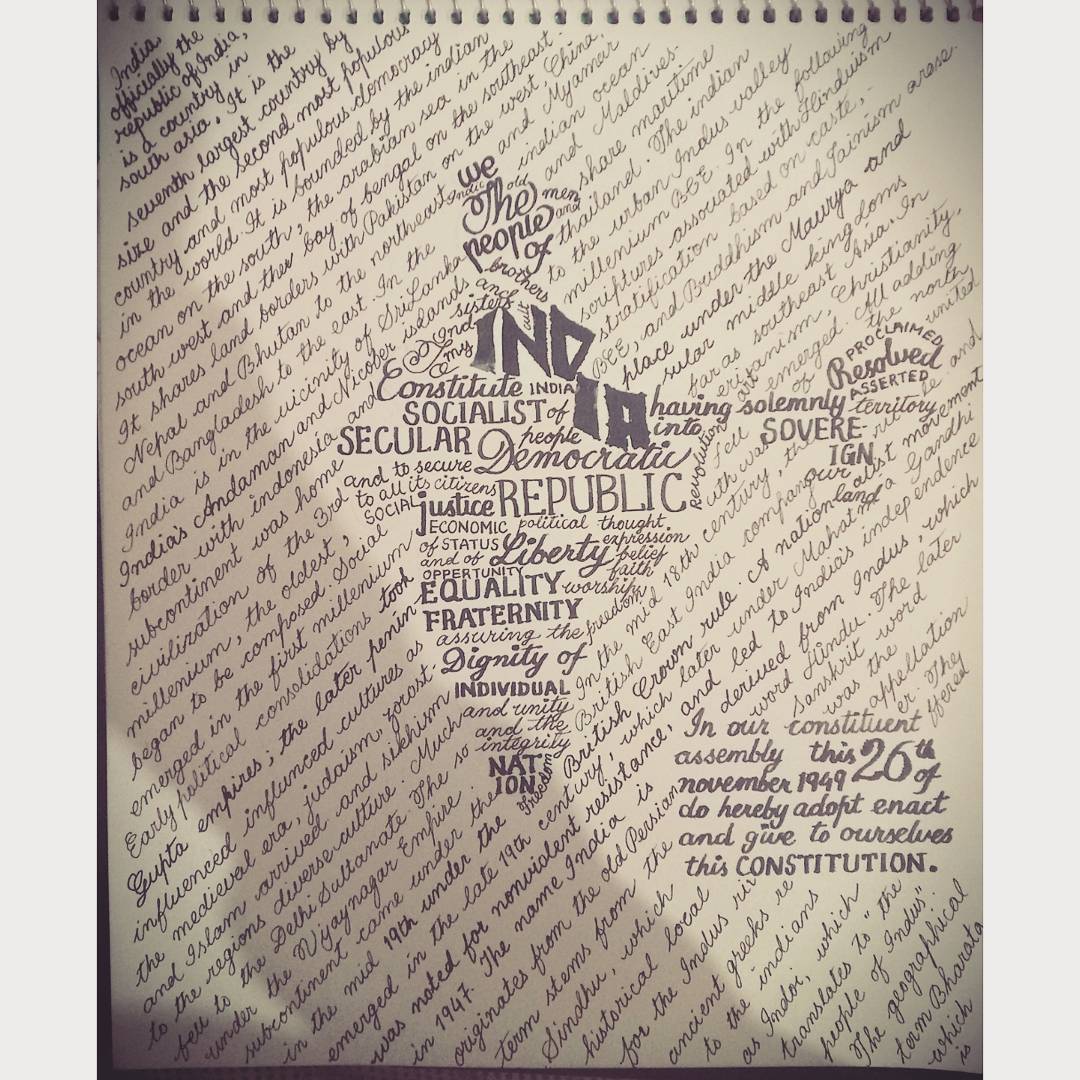 India,
officially the
republic of India,
is a country in
south asia. It is the
seventh largest country by
size and the second most populous
country and most populous democracy
in the world. It is bounded by the indian
ocean on the south, the arabian sea in the
south west and the bay of bengal on the southeast.
It shares land borders with Pakistan on the west, China,
Nepal and Bhutan to the northeast and Myamar
and Bangladesh to the east. In the indian ocean
India is in the vicinity of SriLanka and Maldives.
India's Andaman and Nicober islands and share maritime
border with indonesia and thailand. The indian
subcontinent was home to the urban Indus valley
civilization of the 3rd millenium BCE. In the following
millenium, the oldest, scriptures associated with Hinduism
began to be composed. Social stratification based on caste,
emerged in the first millenium BCE, and Buddhism and Jainism arose.
Early political consolidations took place under the Maurya and
Gupta empires; the later penin sular middle kingdoms
influenced influnced cultures as far as southeast Asia. In
the medieval era, judaism, zorost eritanism, Christianity,
and Islam arrived and sikhism emerged. All adding
to the regions diverse culture. Much of the north
fell to the Delhi Sultanate. The so uth was united
under the Vijaynagar Empire
subcontinent came under the
in the mid 19th under the British Crown rule. A nationalist movement
emerged in the late 19th century, which later under Mahatma Gandhi
was noted for nonviolent resistance, and led to India's independence
in 1947. The name India is derived from Indus, which
originates from the old Persian word Hindu. The later
term stems from the sanskrit word
Sindhu, which was the
historical local appellation
for the Indus riv er. The
ancient greeks re ffered
to the indians
as Indoi, which
translates to "the
people of Indus".
The geographical
term Bharata
which is
In the mid 18th century, the
British East India company
we
The
people
of
old
men
and
brothers
and
sisters
and
my
cult
INDIA
Constitute INDIA
SOCIALIST of
having solemnly
into
PROCLAIMED
Resolved
ASSERTED
territory
SECULAR people
Democratic
SOVEREIGN
our
land
and to secure
to all its citizens
SOCIAL justice REPUBLIC
Revolution
ECONOMIC political thought
of STATUS Liberty expression
and of belief
OPPORTUNITY faith
EQUALITY worship
FRATERNITY
assuring the freedom
Dignity of
INDIVIDUAL
and unity
and the
integrity
NATION
freedom
In our constituent
assembly this 26th
november 1949 of
do hereby adopt enact
and give to ourselves
this CONSTITUTION.